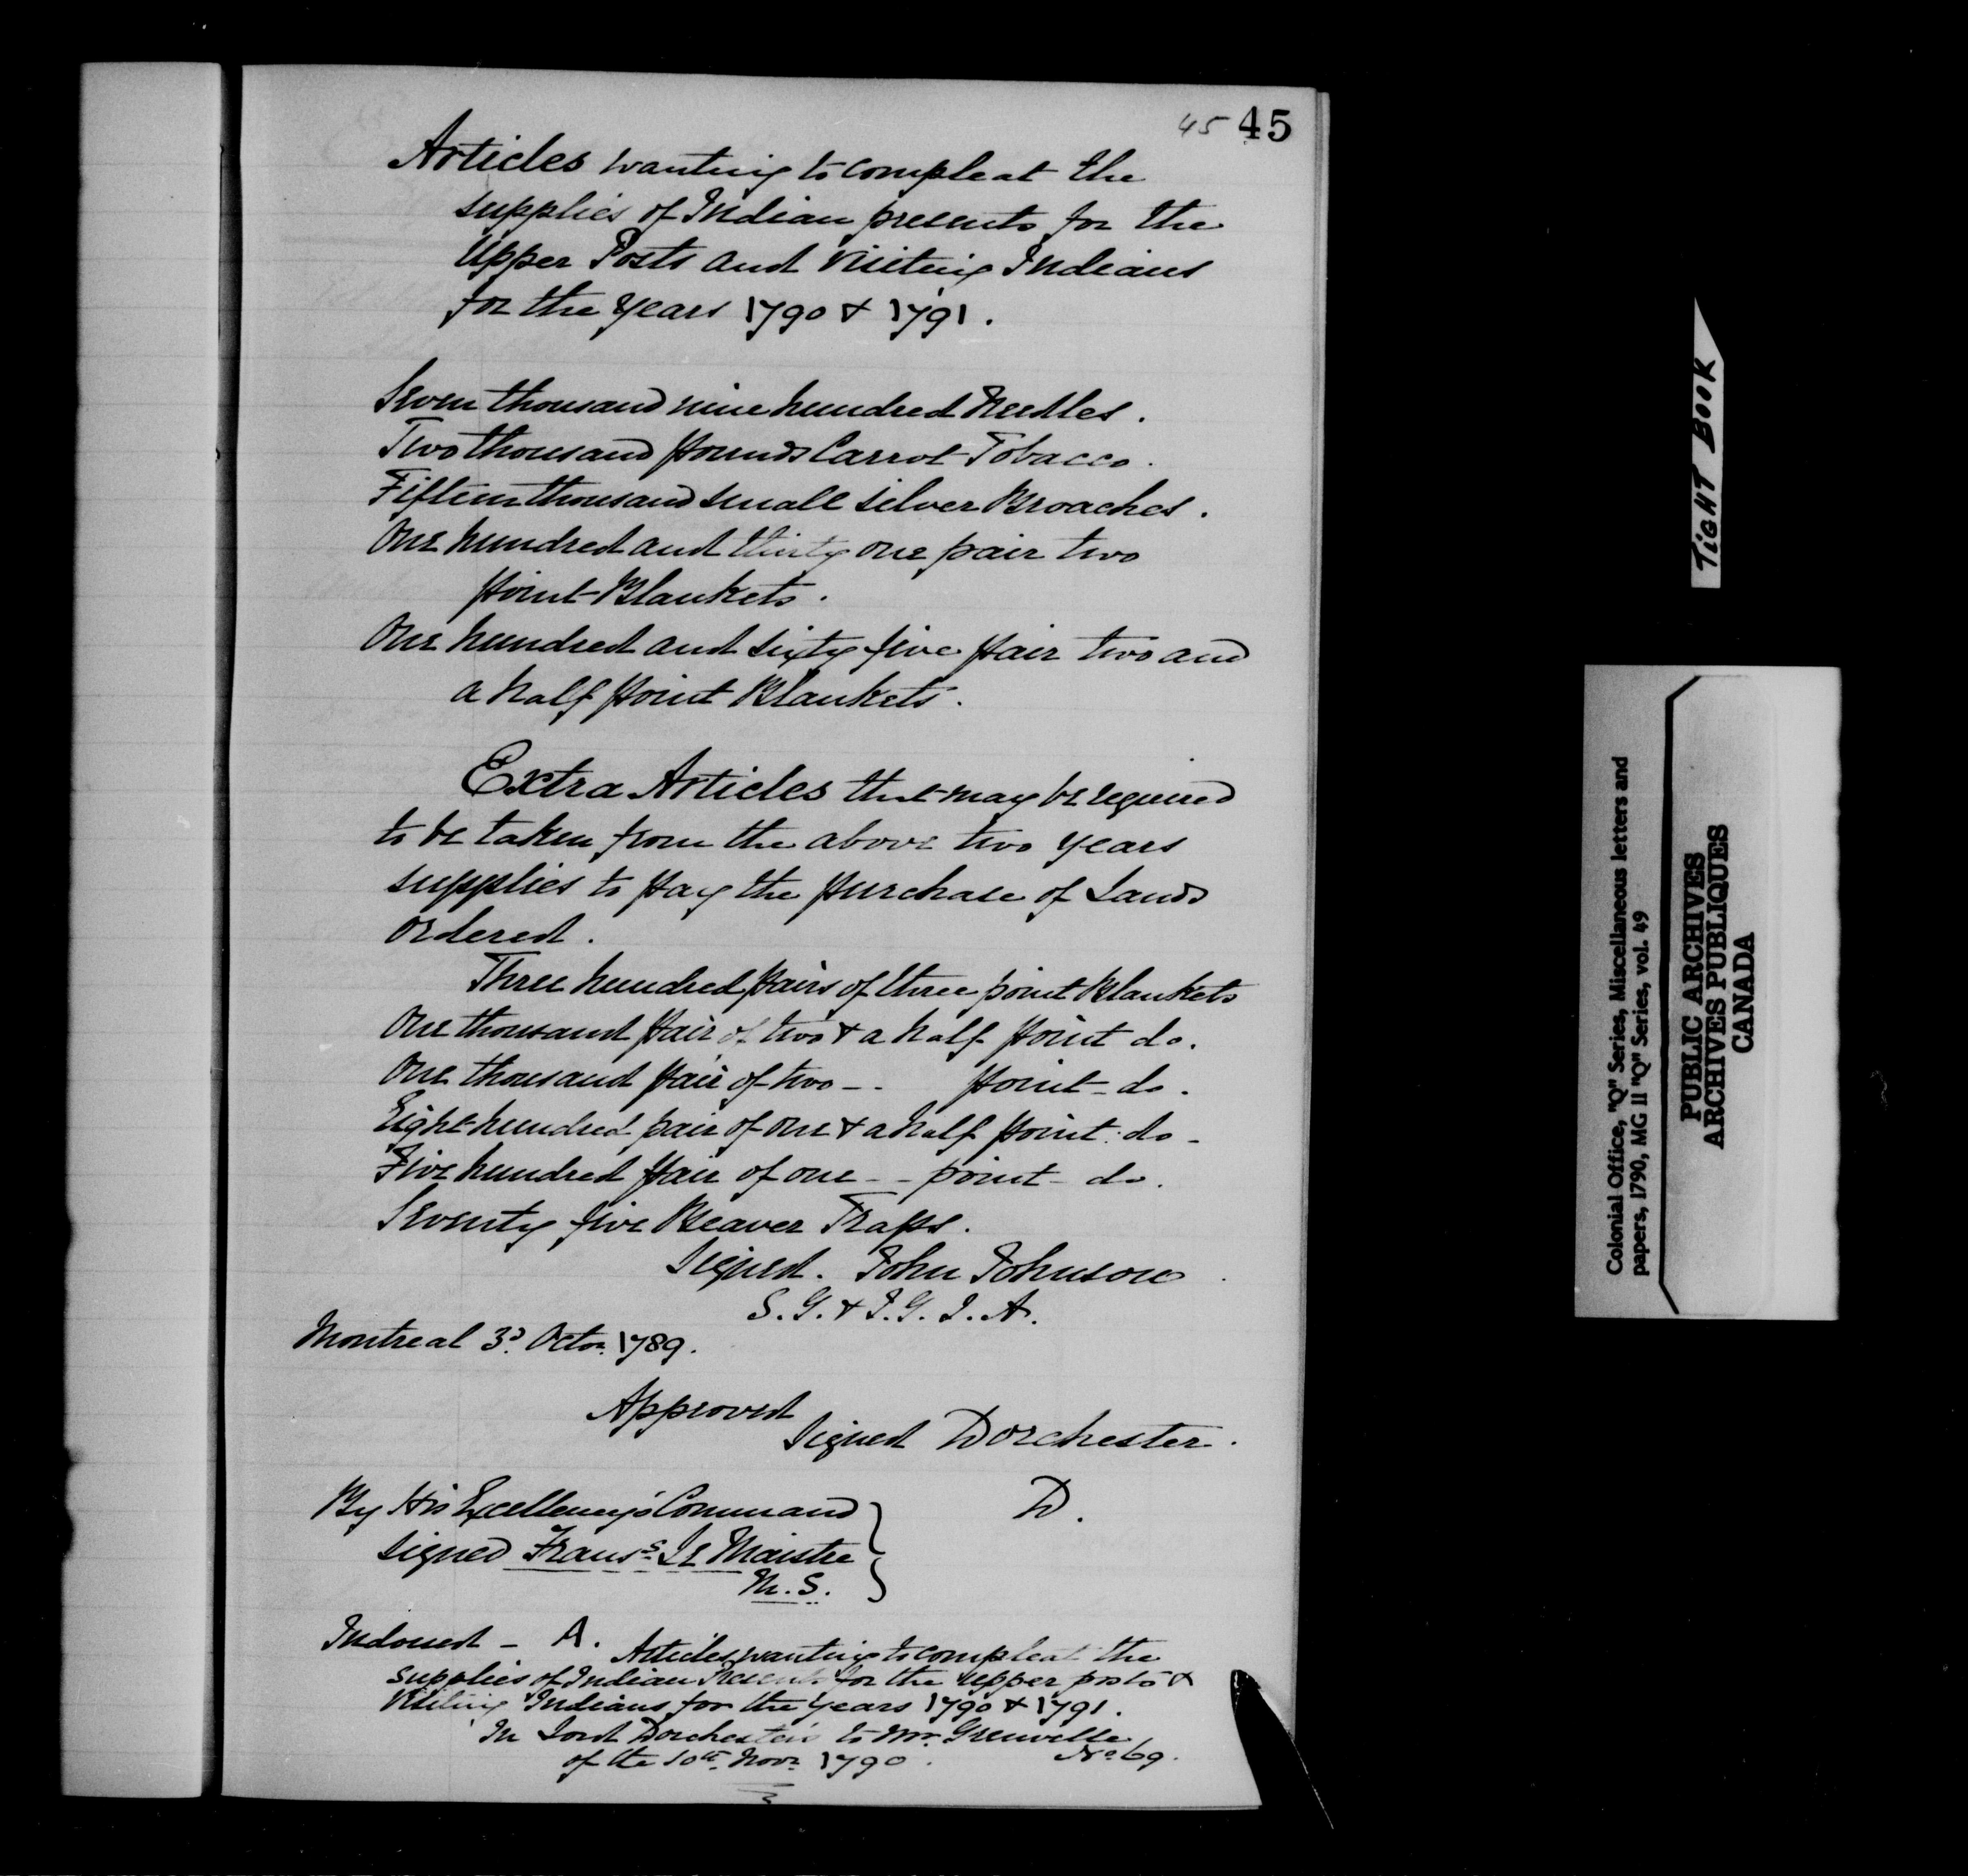 45 45
Articles wanting to compleat the
supplies of Indian presents for the
Upper Posts and visiting Indians
for the years 1790 & 1791.
Seven thousand nine hundred Needles.
Two thousand pounds Carrot Tobacco.
Fifteen thousand small silver Broaches.
One hundred and thirty one pair two
point Blankets.
One hundred and sixty five pair two and
a half point Blankets.
Extra Articles that may be required
to be taken from the above two years
supplies to pay the purchase of Lands
ordered.
Three hundred pairs of three point Blankets
One thousand pair of two & a half point do.
One thousand pair of two - - point - do.
Eight hundred pair of one & a half point do -
Five hundred pair of one - - point - do.
Seventy five Beaver Traps.
Signed. John Johnson
S. G. & I. G. I. A.
Montreal 3d. Octor. 1789.
Approved
Signed Dorchester.
By His Excellency's Command
D.
signed Frans. Le Maistre
M. S.
Indorsed - A. Articles wanting to compleat the
supplies of Indian Presents for the upper posts &
Visiting Indians for the years 1790 & 1791.
In Lord Dorchester's to Mr. Grenville
of the 10th. Novr. 1790. No. 69.
TIGHT BOOK
Colonial Office, "Q" Series, Miscellaneous letters and
papers, 1790, MG 11 "Q" Series, vol. 49
PUBLIC ARCHIVES
ARCHIVES PUBLIQUES
CANADA